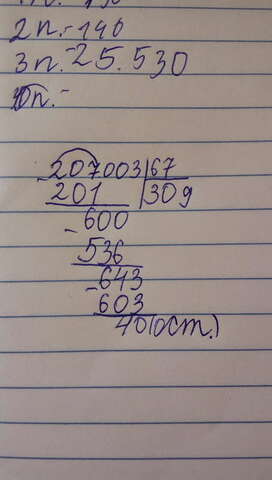 2п.-140
3п.-25.530
п.-
-207003|67
201 |309
-600
536
-643
603
40(ост.)